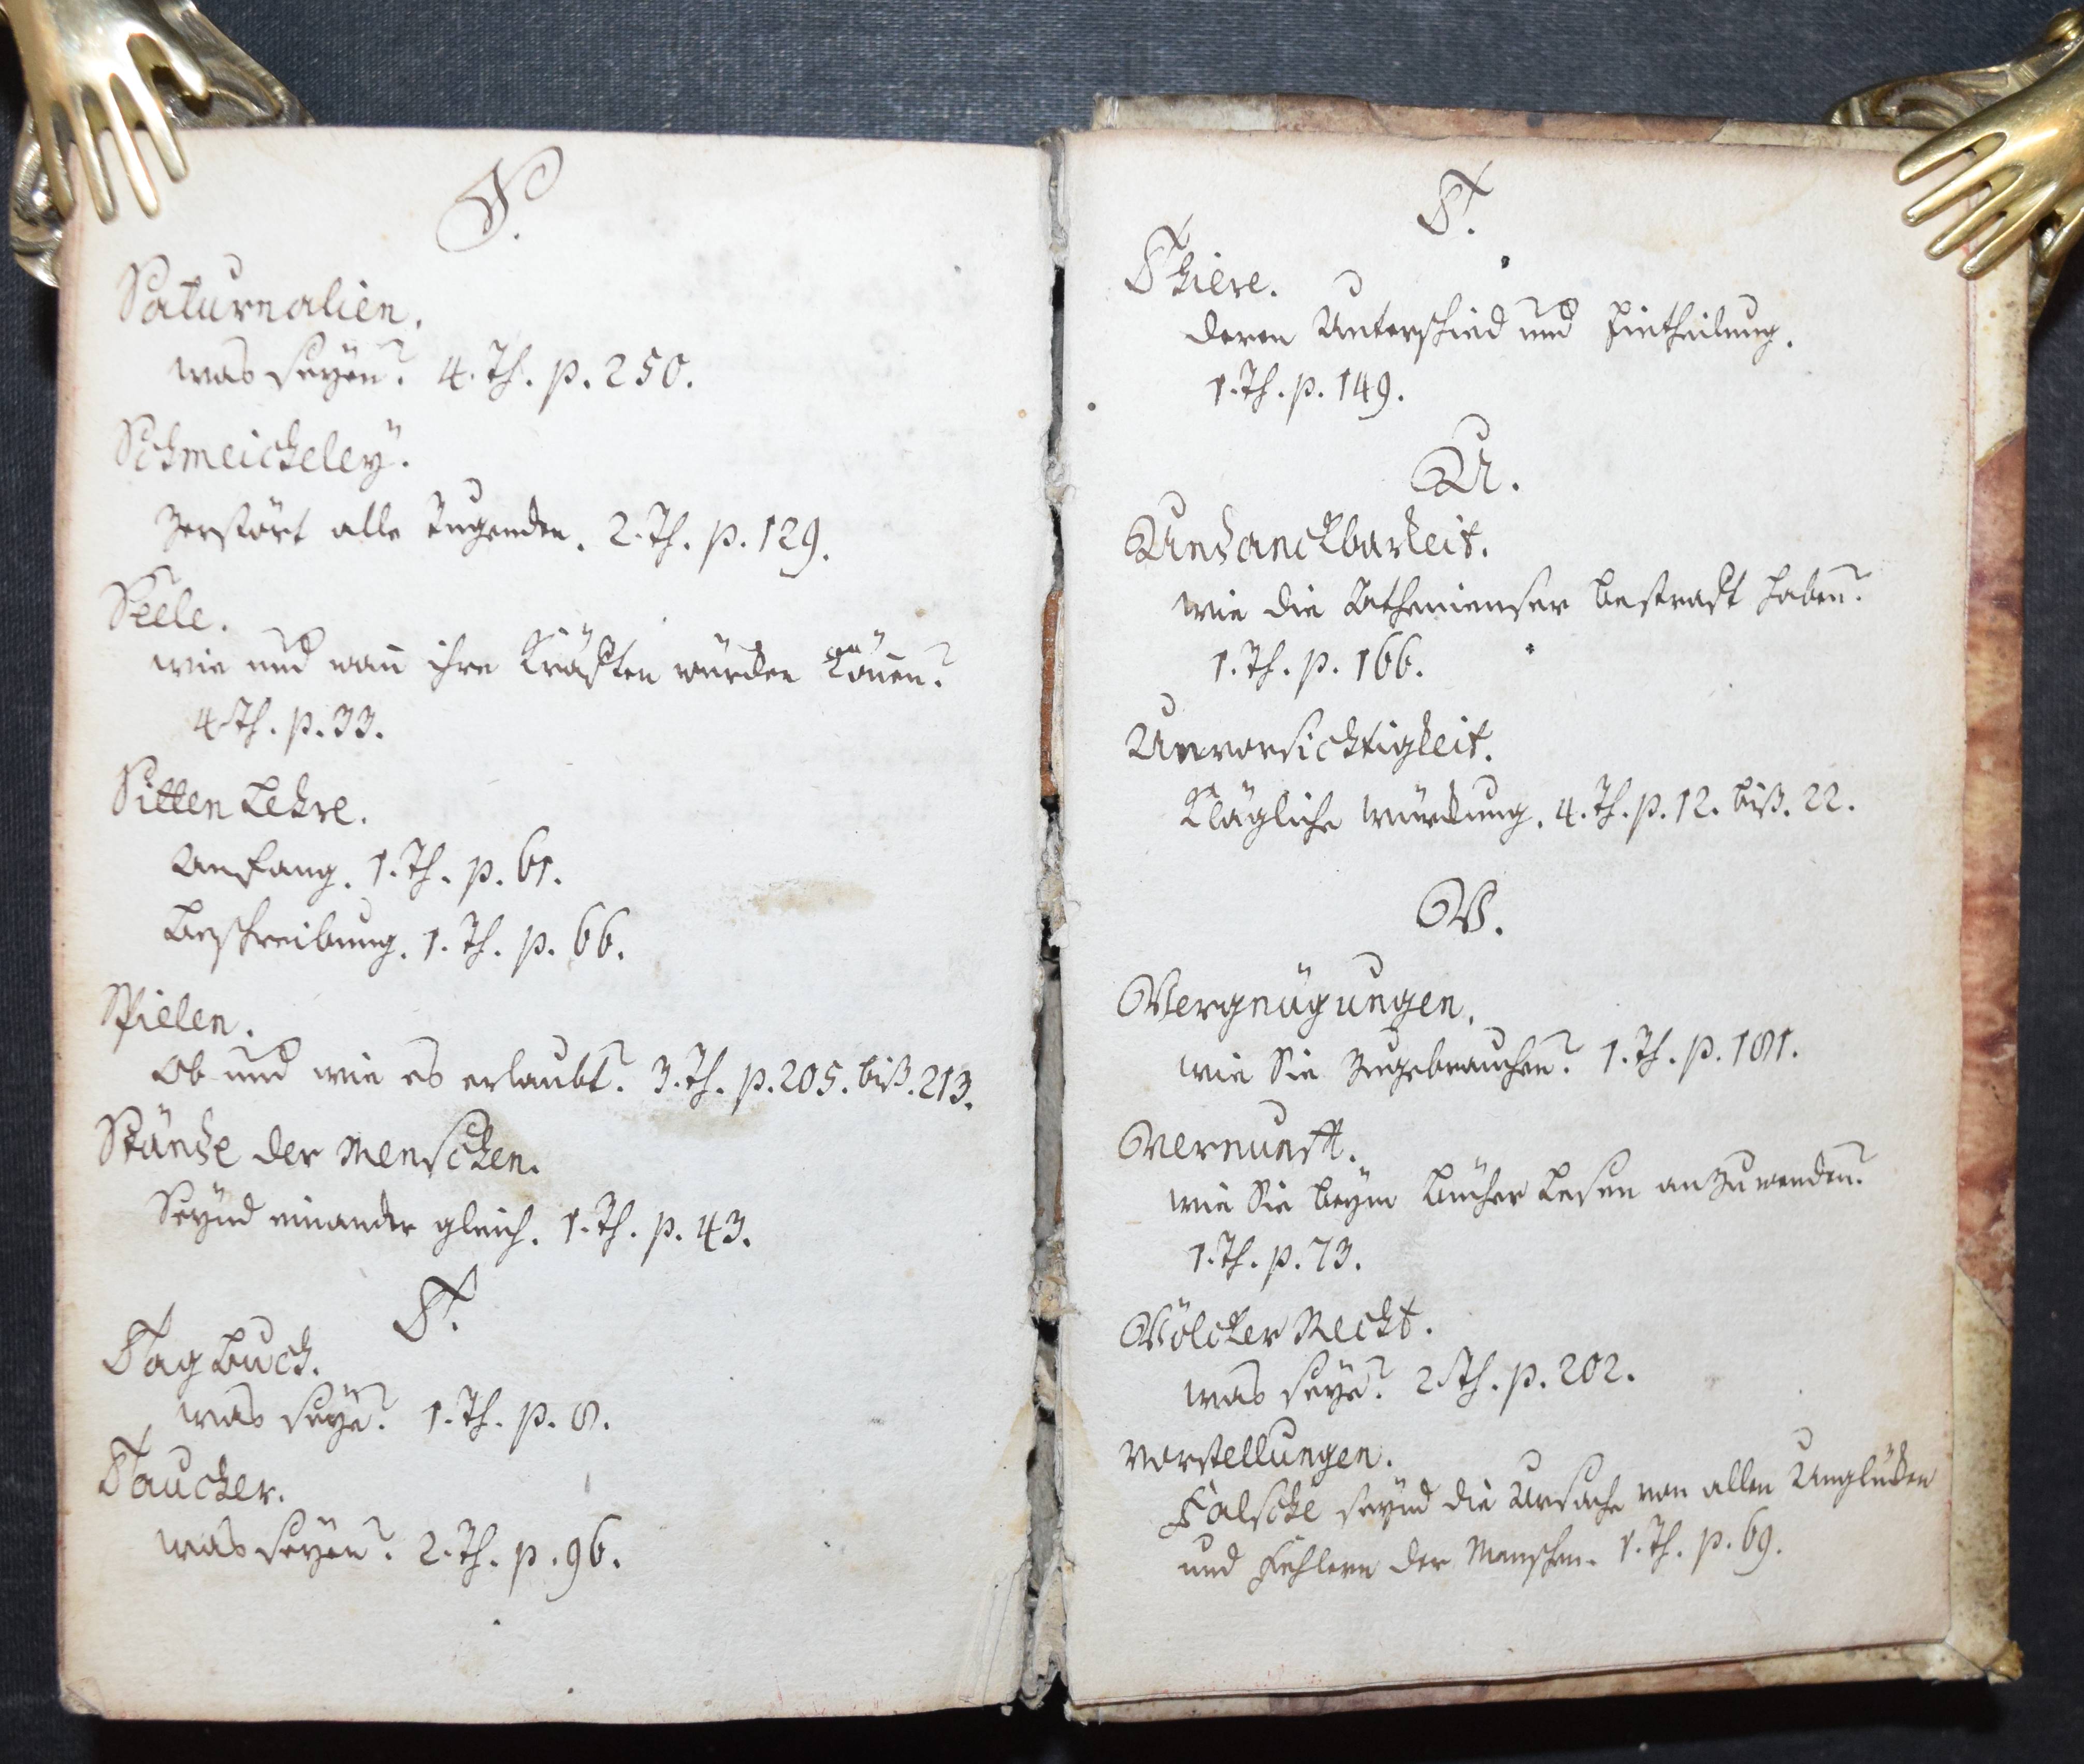 S.
Saturnalien.
was seÿen? 4. Th. p. 250.
Schmeicheleÿ.
Zerstört alle Tugenden. 2. Th. p. 129.
Seele.
wie und wañ ihre Kräfften würcken köñen?
4 Th. p. 33.
Sitten Lehre.
Anfang. 1. Th. p. 61.
Beschreibung. 1. Th. p. 66.
Spielen.
Ob und wie es erlaubt? 3. Th. p. 205. biß. 213.
Stände der Menschen.
Seÿnd einander gleich. 1. Th. p. 43.
T.
Tag Buch.
was seÿe? 1. Th. p. 8.
Taucher.
was seÿen? 2. Th. p. 96.
T.
Thiere.
deren Unterschied und Eintheilung.
1. Th. p. 149.
U.
Undanckbarkeit.
wie die Athenienser bestrafft haben?
1. Th. p. 166.
Unvorsichtigkeit.
Klägliche Würckung. 4. Th. p. 12. biß. 22.
V.
Vergnügungen.
wie Sie Zugebrauchen? 1. Th. p. 181.
Vernunfft.
wie Sie beÿm Bücher Lesen anzuwenden?
1. Th. p. 73.
Völcker Recht.
was seÿe? 2 Th. p. 202.
Vorstellungen.
Falsche seÿnd die Ursache von allen Unglücken
und Fehlern der Menschen. 1. Th. p. 69.